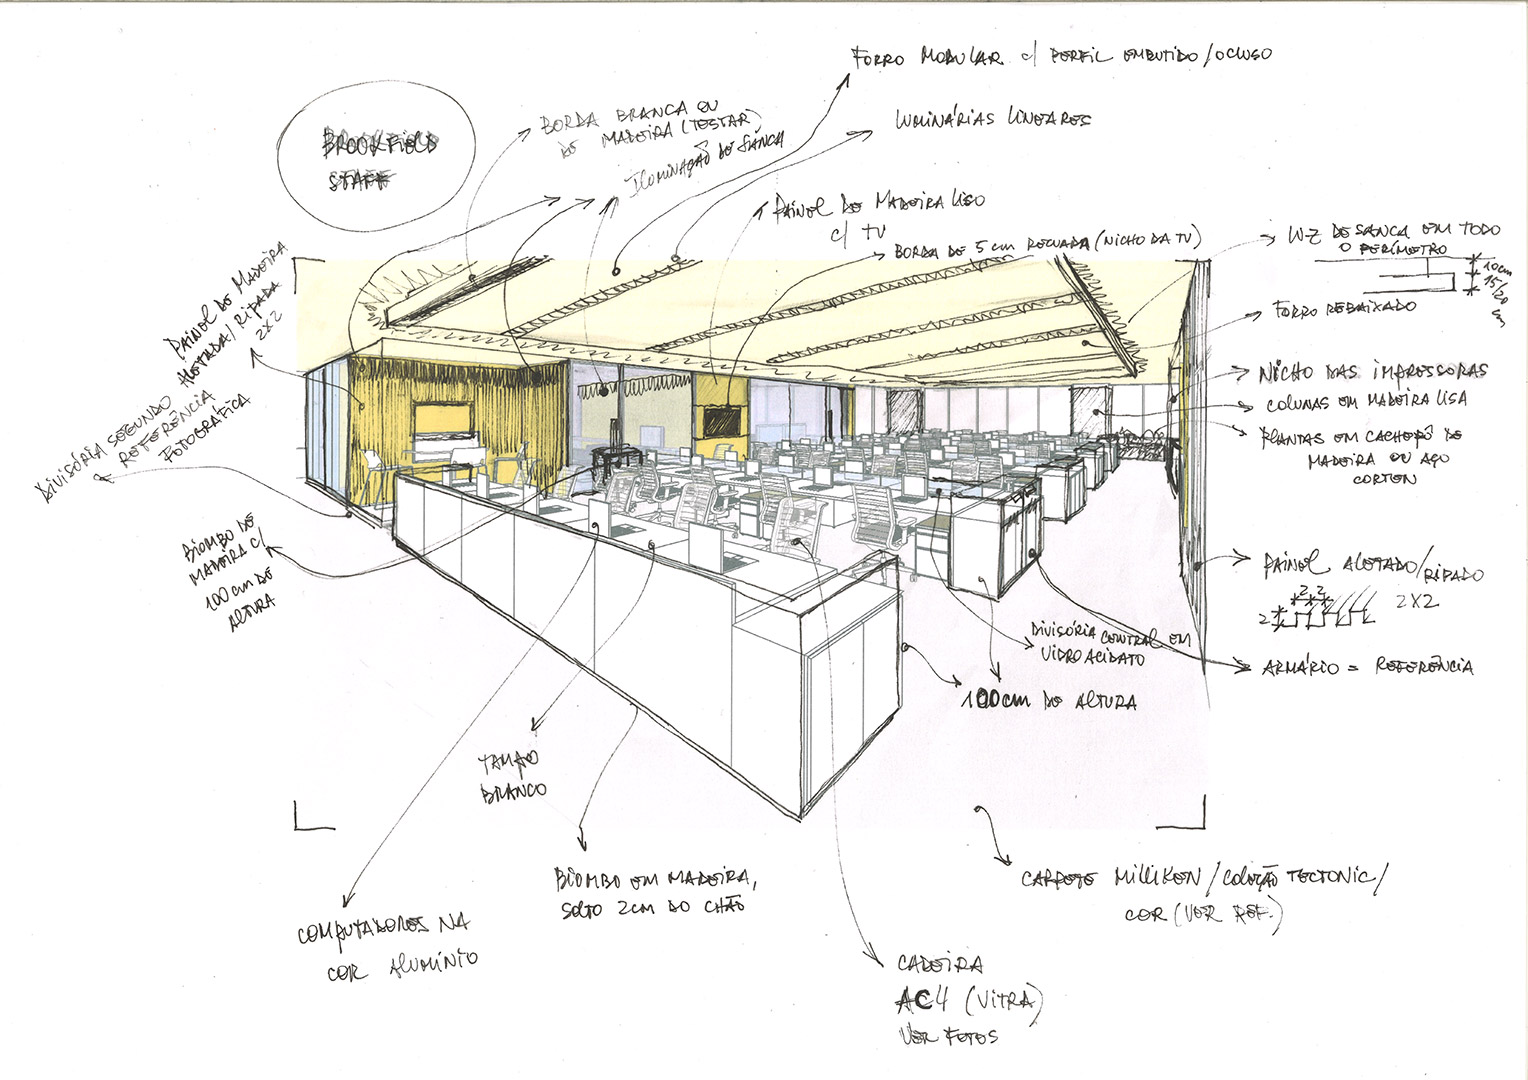 FORRO MODULAR c/ PERFIL EMBUTIDO/OCLUSO
LUMINÁRIAS LINEARES
BROOKFIELD
STAFF
BORDA BRANCA OU
DE MADEIRA (TESTAR)
ILUMINAÇÃO DE SANCA
PAINEL DE MADEIRA LISO
c/ TV
BORDA DE 5 cm RECUADA (NICHO DA TV)
LUZ DE SANCA EM TODO
O PERÍMETRO
10cm
15/20
cm
FORRO REBAIXADO
PAINEL DE MADEIRA
ALETADA/RIPADA
2X2
DIVISÓRIA SEGUNDO
REFERÊNCIA
FOTOGRÁFICA
NICHO DAS IMPRESSORAS
COLUNAS EM MADEIRA LISA
PLANTAS EM CACHEPÔ DE
MADEIRA OU AÇO
CORTEN
BIOMBO DE
MADEIRA c/
100 cm DE
ALTURA
PAINEL ALETADO/RIPADO
2 2
2
2X2
DIVISÓRIA CENTRAL EM
VIDRO ACIDATO
ARMÁRIO = REFERÊNCIA
100cm DE ALTURA
TAMPO
BRANCO
BIOMBO EM MADEIRA,
SOLTO 2CM DO CHÃO
CARPETE MILLIKEN/COLEÇÃO TECTONIC/
COR (VER REF.)
COMPUTADORES NA
COR ALUMÍNIO
CADEIRA
AC4 (VITRA)
VER FOTOS